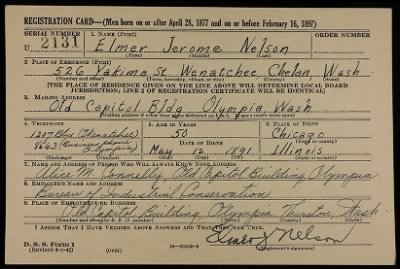 REGISTRATION CARD—(Men born on or after April 28, 1877 and on or before February 16, 1897)
SERIAL NUMBER 1. NAME (Print) ORDER NUMBER
U 2131 Elmer Jerome Nelson
(First) (Middle) (Last)
2. PLACE OF RESIDENCE (Print)
526 Yakima St. Wenatchee Chelan, Wash
(Number and street) (Town, township, village, or city) (County) (State)
[THE PLACE OF RESIDENCE GIVEN ON THE LINE ABOVE WILL DETERMINE LOCAL BOARD
JURISDICTION; LINE 2 OF REGISTRATION CERTIFICATE WILL BE IDENTICAL]
3. MAILING ADDRESS
Old Capitol Bldg. Olympia, Wash
4. TELEPHONE 5. AGE IN YEARS 6. PLACE OF BIRTH
1207 (Wenatchee) 50 Chicago
8663 (Business phone Olympia) DATE OF BIRTH
May 12 1891 Illinois
(Mo.) (Day) (Yr.)
7. NAME AND ADDRESS OF PERSON WHO WILL ALWAYS KNOW YOUR ADDRESS
Alice M. Connelly, Old Capitol Building Olympia
8. EMPLOYER'S NAME AND ADDRESS
Bureau of Industrial Conservation
9. PLACE OF EMPLOYMENT OR BUSINESS
Old Capitol Building, Olympia Thurston, Wash.
I AFFIRM THAT I HAVE VERIFIED ABOVE ANSWERS AND THAT THEY ARE TRUE.
D. S. S. Form 1
(Revised 4-1-42) (over)
Elmer J Nelson
(Registrant's signature)